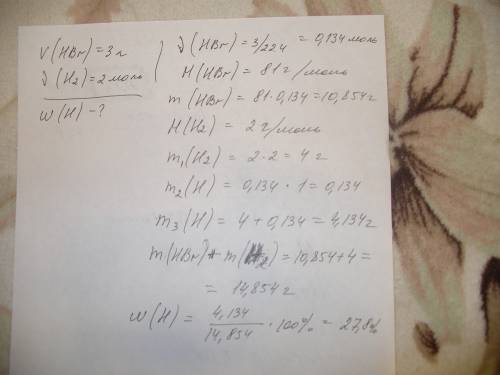 V(HBr)=3л
ϑ(H₂)=2моль
W(H)-?
ϑ(HBr)=3/22,4=0,134моль
M(HBr)=81г/моль
m(HBr)=81·0,134=10,854г
M(H₂)=2г/моль
m₁(H₂)=2·2=4г
m₂(H)=0,134·1=0,134
m₃(H)=4+0,134=4,134г
m(HBr)+m(H₂)=10,854+4=
=14,854г
W(H)=4,134/14,854·100%=27,8%